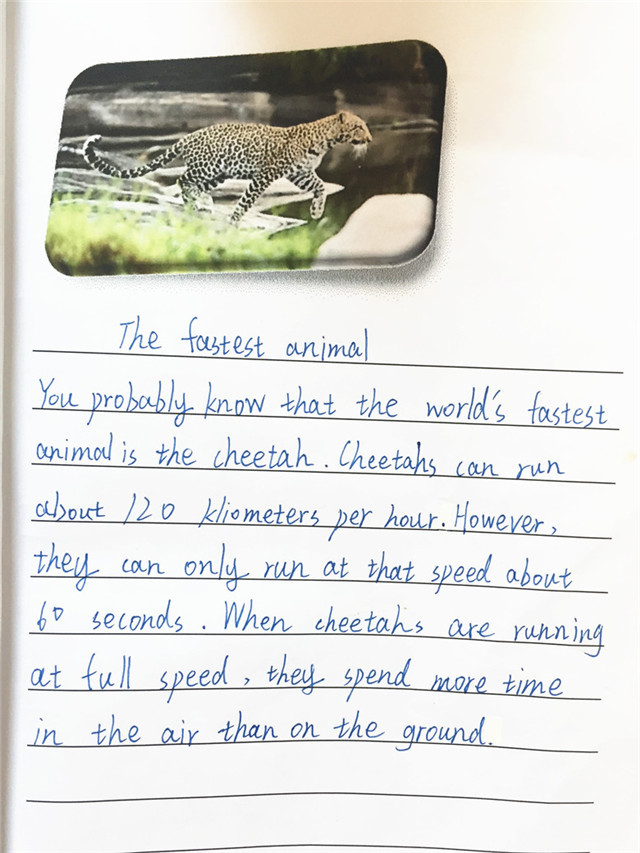 The fastest animal
You probably know that the world's fastest
animal is the cheetah. Cheetahs can run
about 120 kliometers per hour. However,
they can only run at that speed about
60 seconds. When cheetahs are running
at full speed, they spend more time
in the air than on the ground.